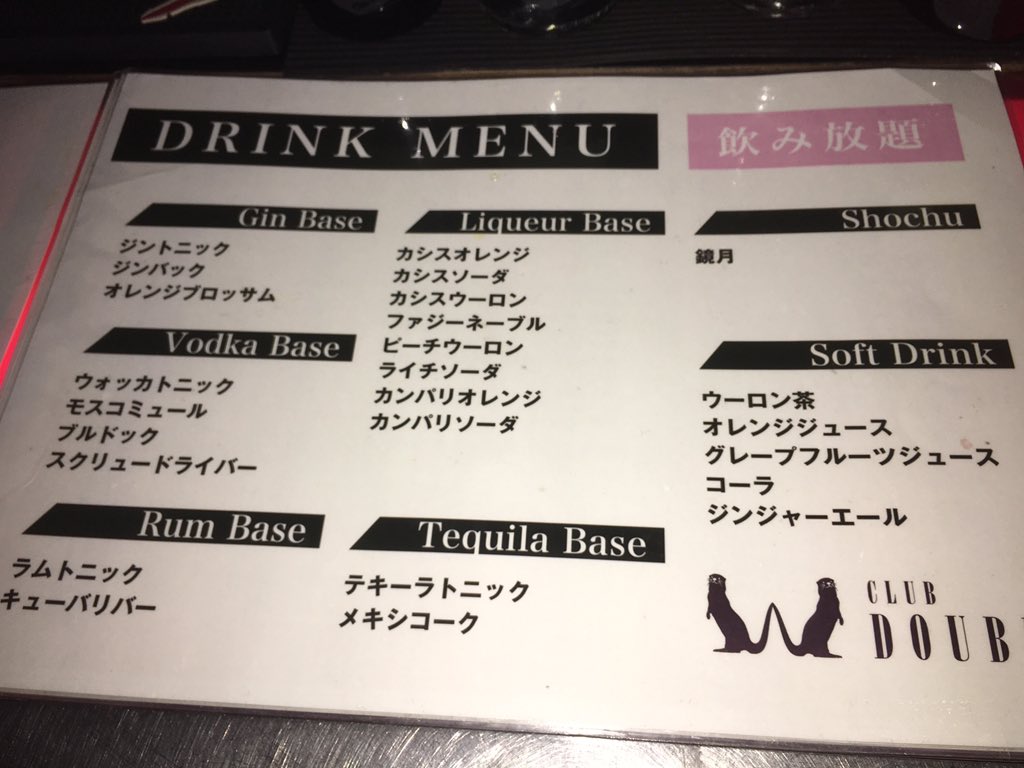 DRINK MENU
飲み放題
Gin Base
ジントニック
ジンバック
オレンジブロッサム
Vodka Base
ウォッカトニック
モスコミュール
ブルドック
スクリュードライバー
Rum Base
ラムトニック
キューバリバー
Liqueur Base
カシスオレンジ
カシスソーダ
カシスウーロン
ファジーネーブル
ピーチウーロン
ライチソーダ
カンパリオレンジ
カンパリソーダ
Tequila Base
テキーラトニック
メキシコーク
Shochu
鏡月
Soft Drink
ウーロン茶
オレンジジュース
グレープフルーツジュース
コーラ
ジンジャーエール
CLUB
DOUB